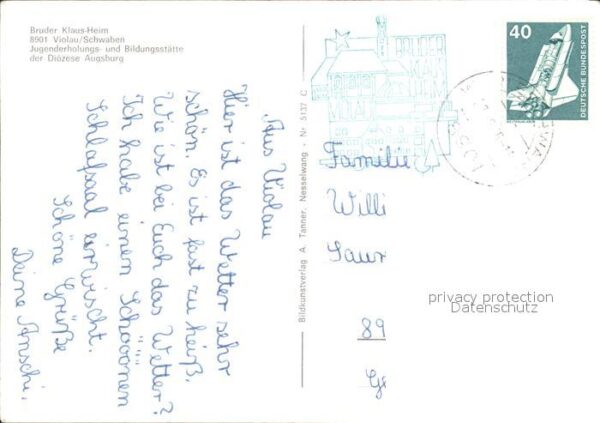 Bruder Klaus-Heim
8901 Violau/Schwaben
Jugenderholungs- und Bildungsstätte
der Diözese Augsburg
Aus Violau
Hier ist das Wetter sehr
schön. Es ist fast zu heiß.
Wie ist bei Euch das Wetter?
Ich habe einen Schööönen
Schlafsaal erwischt.
Schöne Grüße
Deine Anschi.
Bildkunstverlag A. Tanner, Nesselwang · Nr. 5137 C
40
DEUTSCHE BUNDESPOST
Familie
Willi
Saur
89
privacy protection
Datenschutz